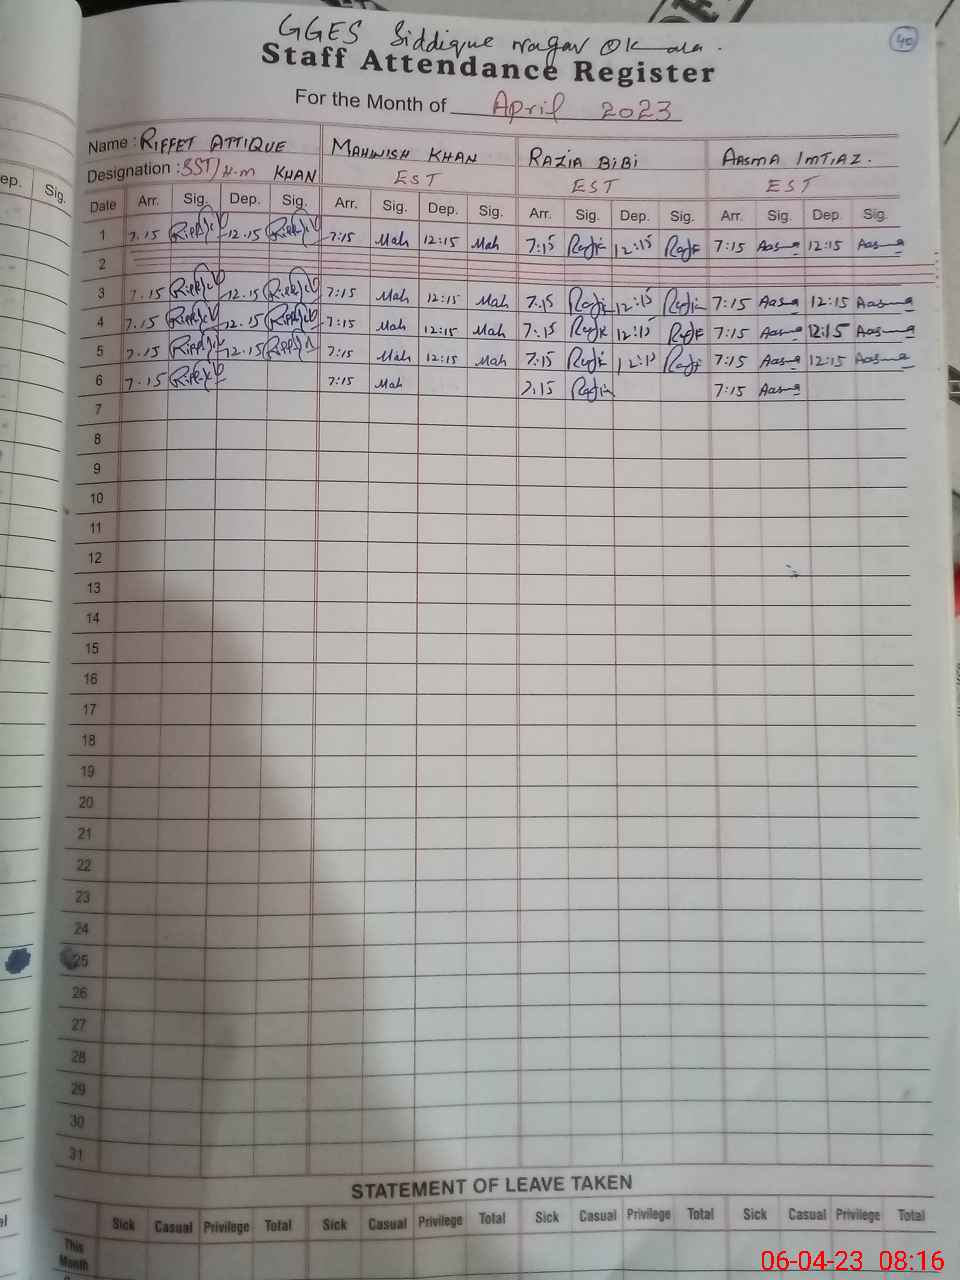 GGES Siddique nagar Okara.
40
Staff Attendance Register
For the Month of April 2023
Name : RIFFET ATTIQUE MAHWISH KHAN RAZIA BIBI AASMA IMTIAZ.
Designation : SST/H.m KHAN EST EST EST
ep. Sig. Date Arr. Sig. Dep. Sig. Arr. Sig. Dep. Sig. Arr. Sig. Dep. Sig. Arr. Sig. Dep. Sig.
1 7.15 12.15 7:15 Mah 12:15 Mah 7:15 12:15 7:15 Aasma 12:15 Aasma
2
3 7.15 12.15 7:15 Mah 12:15 Mah 7.15 12:15 7:15 Aasma 12:15 Aasma
4 7.15 12.15 7:15 Mah 12:15 Mah 7:15 12:15 7:15 Aasma 12:15 Aasma
5 7.15 12.15 7:15 Mah 12:15 Mah 7:15 12:15 7:15 Aasma 12:15 Aasma
6 7.15 7:15 Mah 7.15 7:15 Aasma
7
8
9
10
11
12
13
14
15
16
17
18
19
20
21
22
23
24
25
26
27
28
29
30
31
STATEMENT OF LEAVE TAKEN
Sick Casual Privilege Total Sick Casual Privilege Total Sick Casual Privilege Total Sick Casual Privilege Total
This
Month
06-04-23 08:16